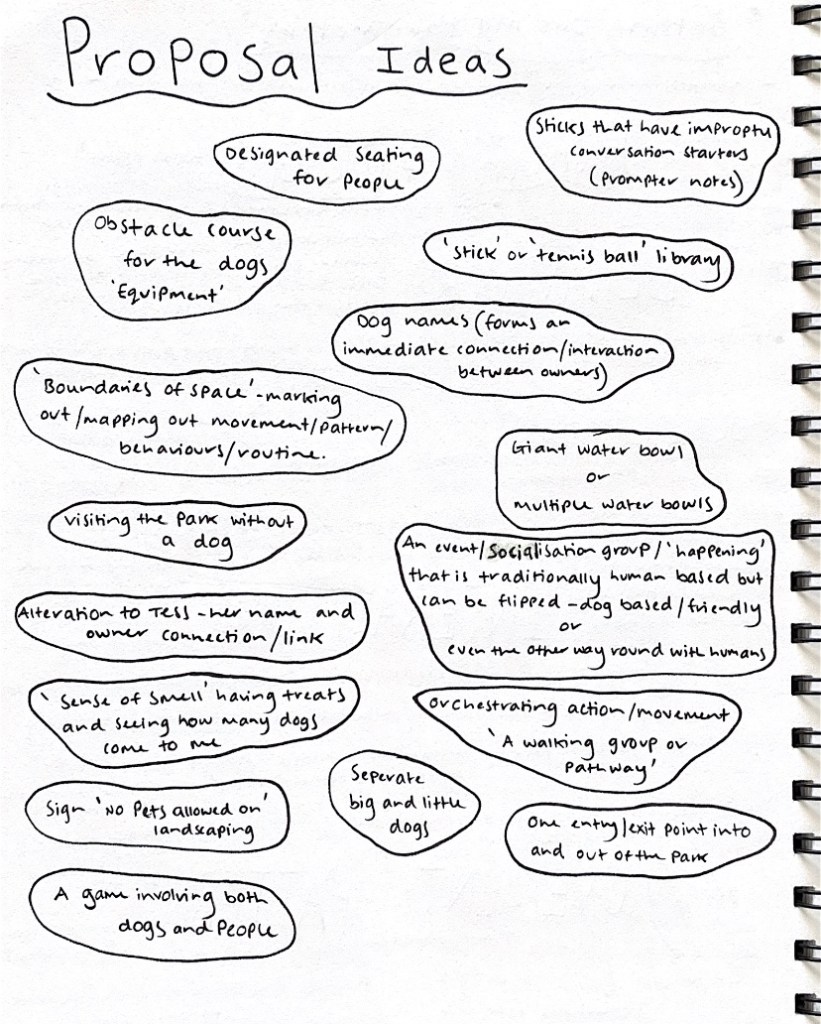 Proposal Ideas
Designated seating
for people
Sticks that have improptu
conversation starters
(prompter notes)
Obstacle course
for the dogs
'Equipment'
'stick' or 'tennis ball' library
Dog names (forms an
immediate connection/interaction
between owners)
'Boundaries of space' - marking
out/mapping out movement/pattern/
behaviours/routine.
Giant water bowl
or
multiple water bowls
visiting the park without
a dog
An event/socialisation group/'happening'
that is traditionally human based but
can be flipped - dog based/friendly
or
even the other way round with humans
Alteration to Tess - her name and
owner connection/link
'Sense of smell' having treats
and seeing how many dogs
come to me
Orchestrating action/movement
'A walking group or
pathway'
Seperate
big and little
dogs
Sign 'No pets allowed on'
landscaping
One entry/exit point into
and out of the park
A game involving both
dogs and people